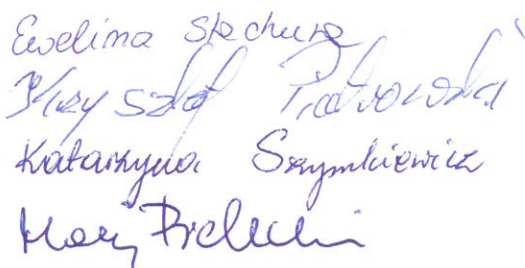 Ewelina Stachura
Krzysztof Piotrowski
Katarzyna Szymkiewicz